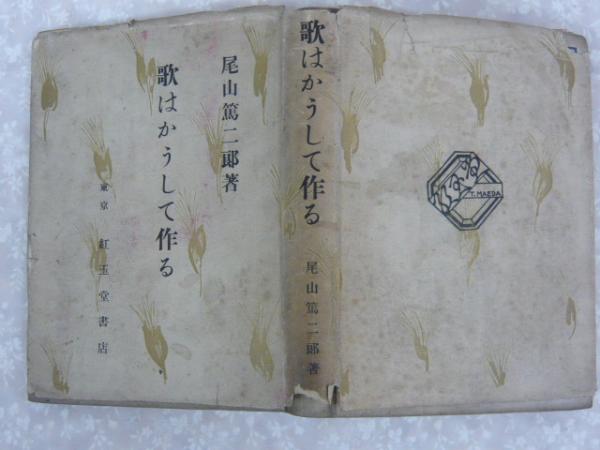 尾山篤二郞著
歌はかうして作る
東京 紅玉堂書店
歌はかうして作る
尾山篤二郞著
T. MAEDA